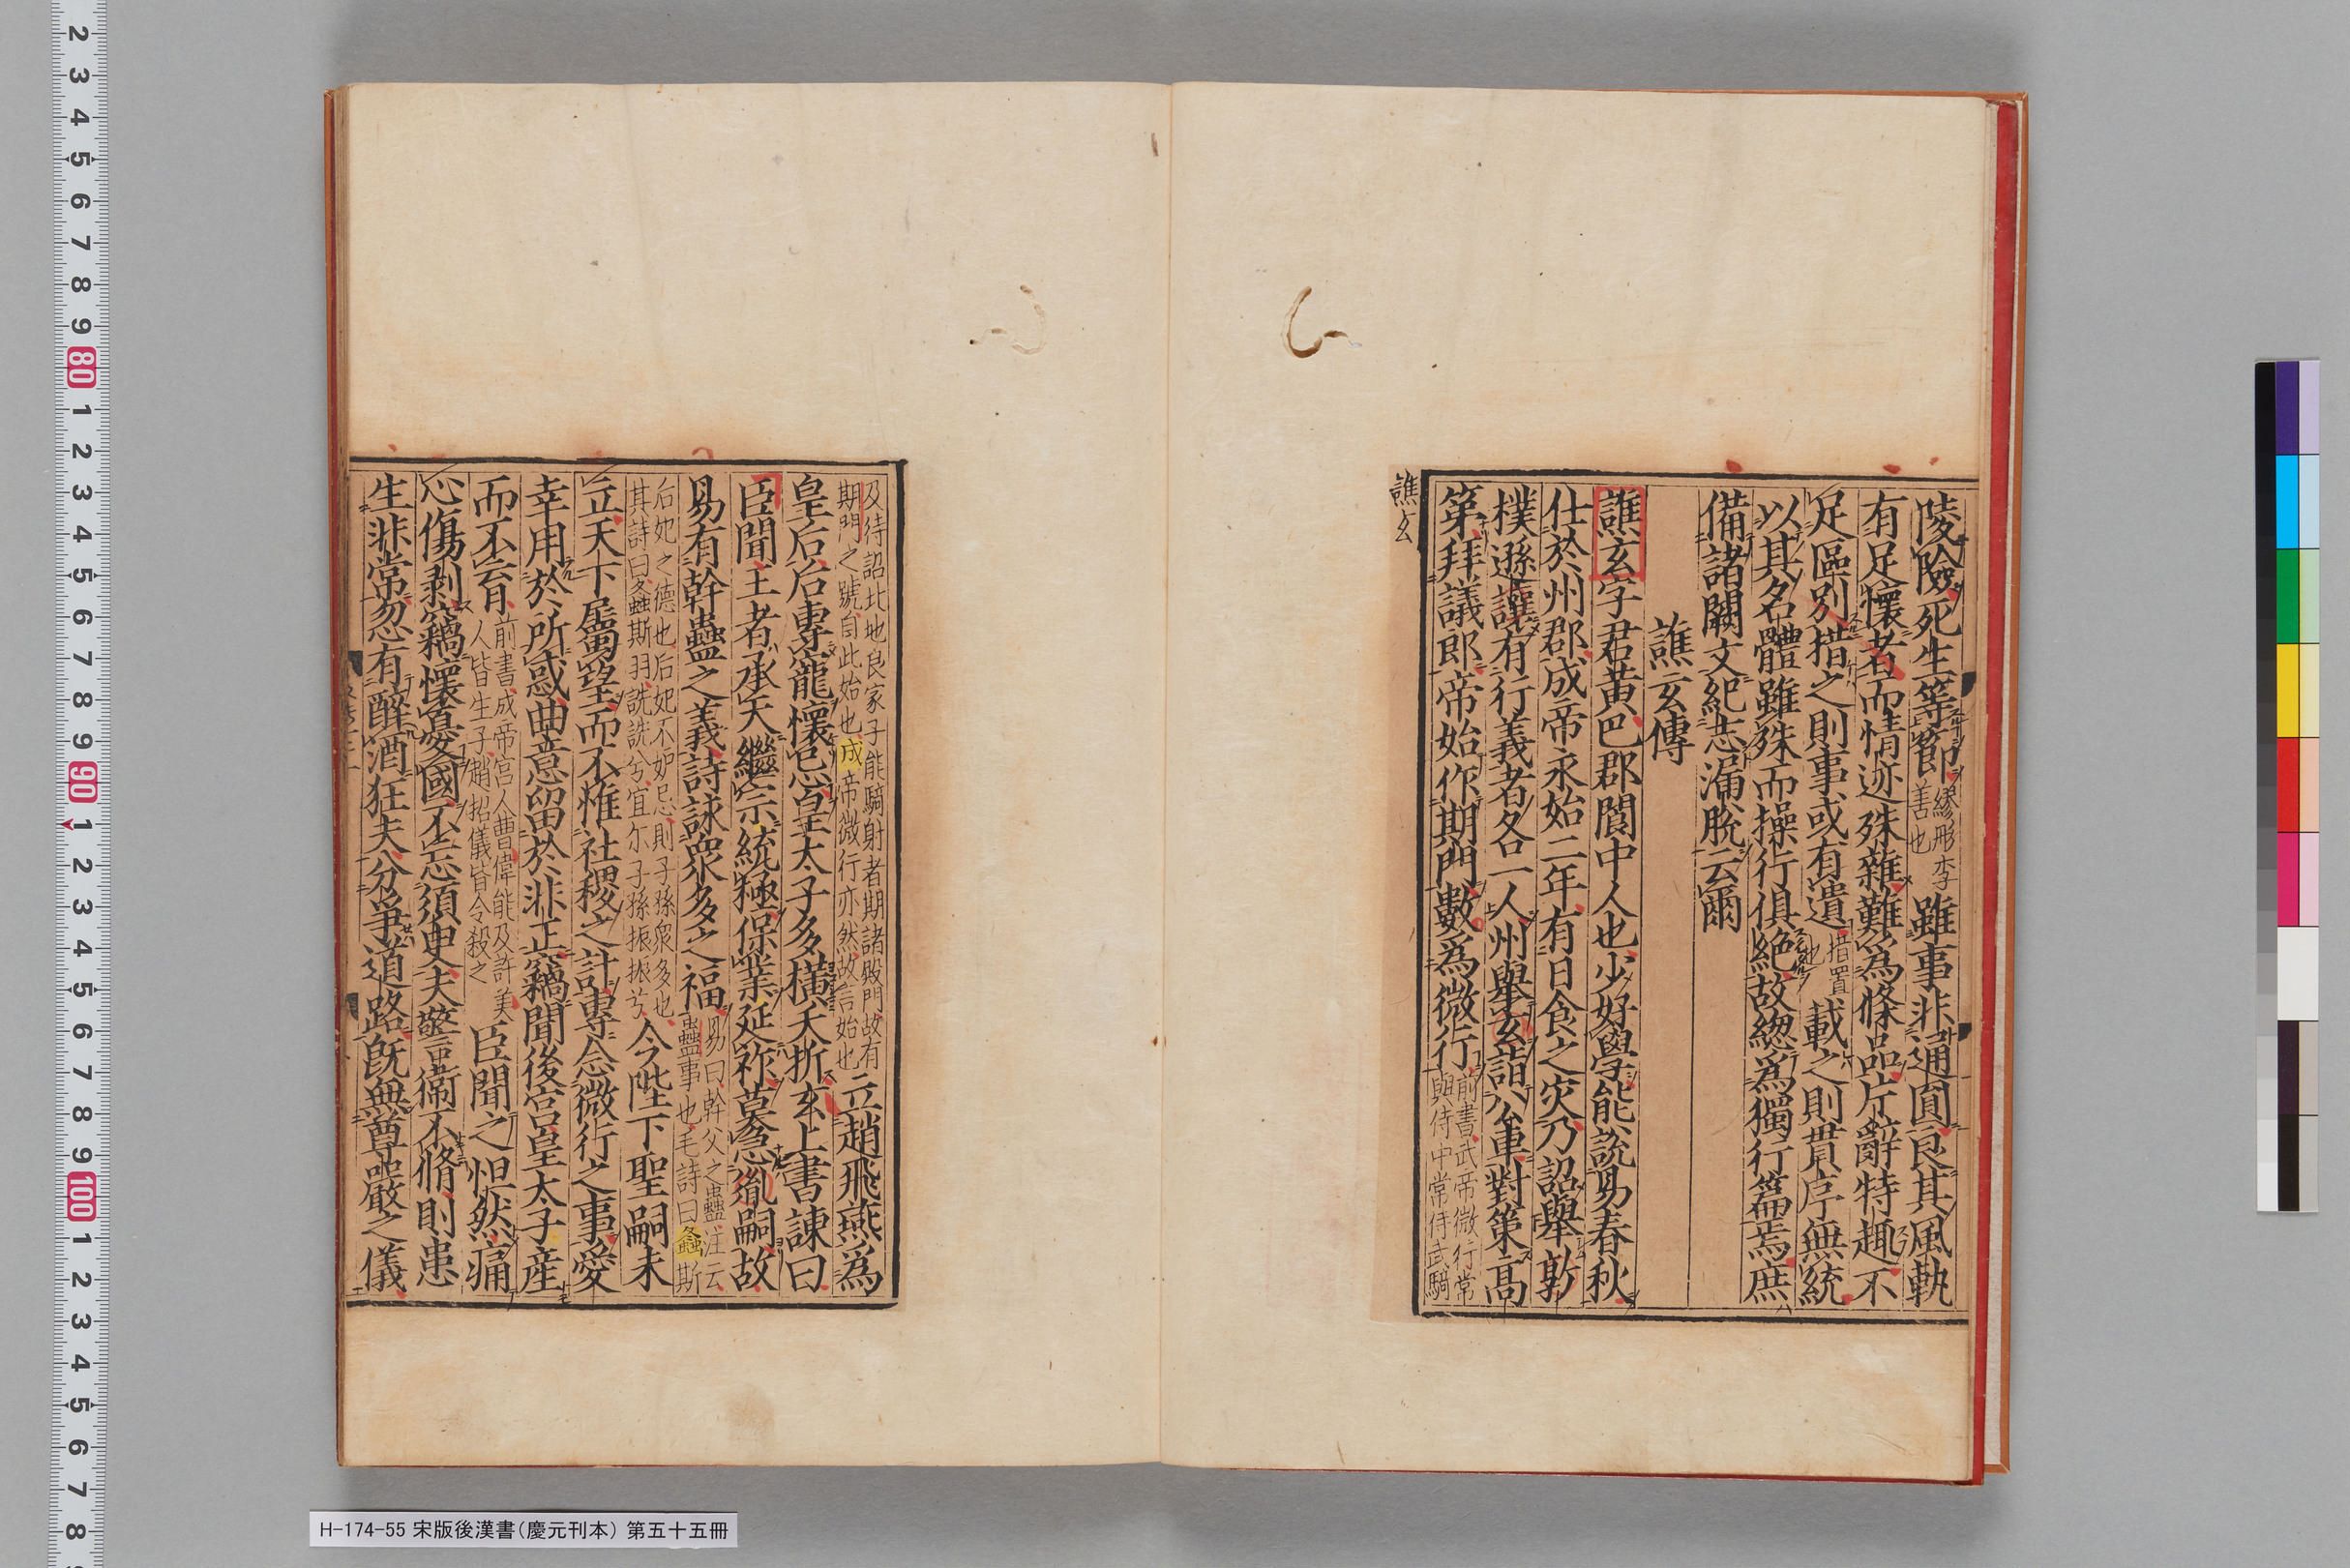 陵險死生等節繆肜李善也雖事非通圓良其風軌
有足懷者而情迹殊雜難爲條品片辭特趣不
足區別措之則事或有遺措置也載之則貫序無統
以其名體雖殊而操行俱絶故緫爲獨行篇焉庶
備諸闕文紀志漏脫云爾
譙玄傳
譙玄字君黃巴郡閬中人也少好學能說易春秋
仕於州郡成帝永始二年有日食之灾乃詔舉敦
樸遜讓有行義者各一人州舉玄詣公車對策高
第拜議郎帝始作期門數爲微行前書武帝微行常與侍中常侍武騎
譙玄
及待詔北地良家子能騎射者期諸殿門故有期門之號自此始也成帝微行亦然故言始也立趙飛燕爲
皇后后專寵懷忌皇太子多橫夭折玄上書諫曰
臣聞王者承天繼宗統極保業延祚莫急胤嗣故
易有幹蠱之義詩詠衆多之福易曰幹父之蠱注云蠱事也毛詩曰螽斯
后妃之德也后妃不妒忌則子孫衆多也其詩曰螽斯羽詵詵兮宜尔子孫振振兮今陛下聖嗣未
立天下屬望而不惟社稷之計專念微行之事愛
幸用於所惑曲意留於非正竊聞後宮皇太子産
而不育前書成帝宮人曹偉能及許美人皆生子趙昭儀皆令殺之臣聞之怛然痛
心傷剥竊懷憂國不忘須臾夫警衞不脩則患
生非常忽有醉酒狂夫分爭道路既無尊嚴之儀
H-174-55 宋版後漢書（慶元刊本） 第五十五冊